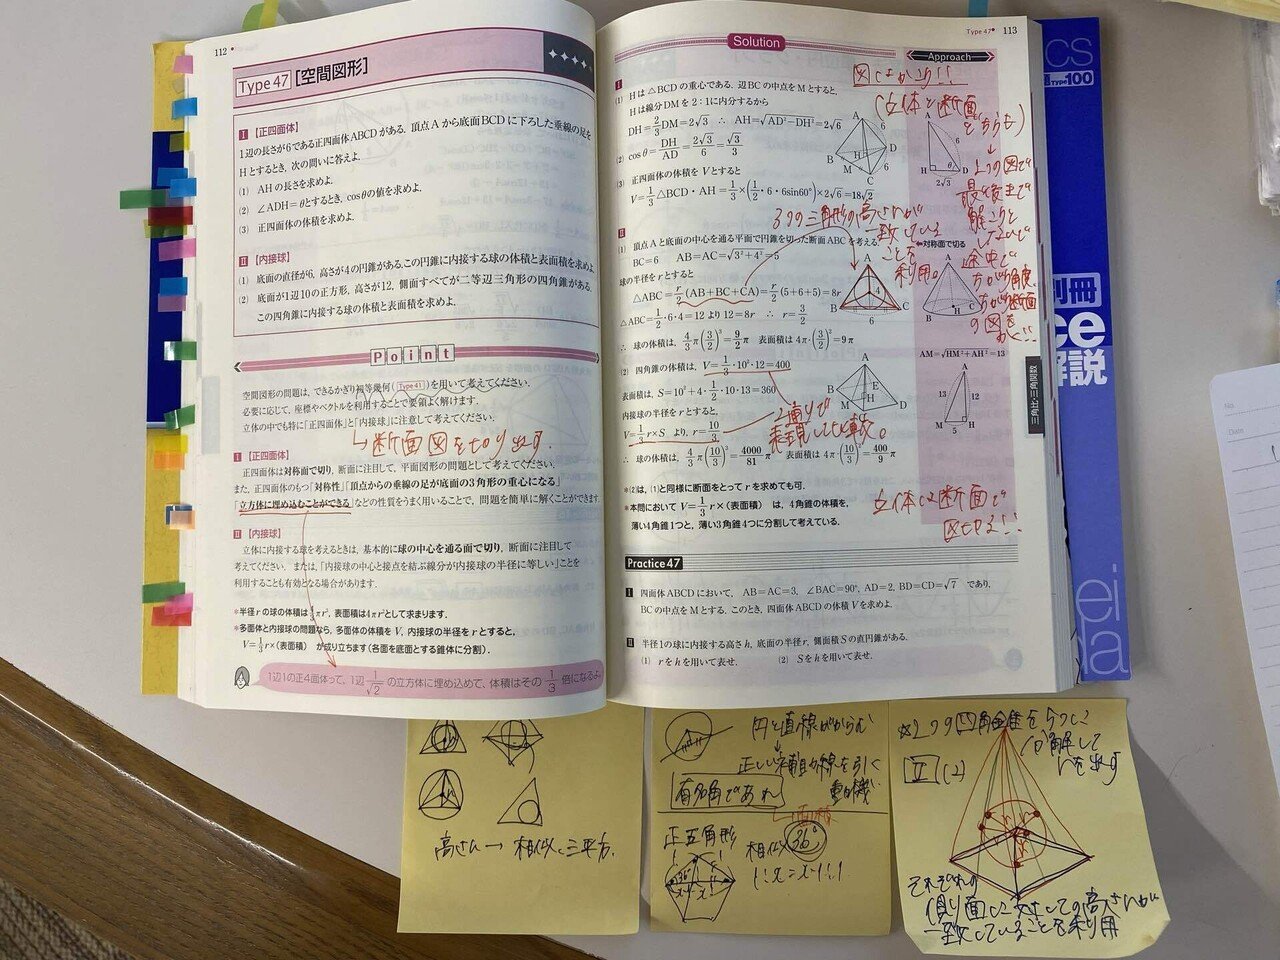 112
Type 47 [空間図形]
I 【正四面体】
1辺の長さが6である正四面体ABCDがある. 頂点Aから底面BCDに下ろした垂線の足を
Hとするとき, 次の問いに答えよ.
(1) AHの長さを求めよ.
(2) ∠ADH=θとするとき, cosθの値を求めよ.
(3) 正四面体の体積を求めよ.
II 【内接球】
(1) 底面の直径が6, 高さが4の円錐がある.この円錐に内接する球の体積と表面積を求めよ.
(2) 底面が1辺10の正方形, 高さが12, 側面すべてが二等辺三角形の四角錐がある.
この四角錐に内接する球の体積と表面積を求めよ.
Point
空間図形の問題は, できるかぎり初等幾何(Type 41)を用いて考えてください.
必要に応じて, 座標やベクトルを利用することで要領よく解けます.
立体の中でも特に「正四面体」と「内接球」に注意して考えてください.
↳断面図をとり出す.
I 【正四面体】
正四面体は対称面で切り, 断面に注目して, 平面図形の問題として考えてください.
また, 正四面体のもつ「対称性」「頂点からの垂線の足が底面の3角形の重心になる」
「立方体に埋め込むことができる」などの性質をうまく用いることで, 問題を簡単に解くことができます.
II 【内接球】
立体に内接する球を考えるときは, 基本的に球の中心を通る面で切り, 断面に注目して
考えてください. または, 「内接球の中心と接点を結ぶ線分が内接球の半径に等しい」ことを
利用することも有効となる場合があります.
*半径rの球の体積は4/3πr³, 表面積は4πr²として求まります.
*多面体と内接球の問題なら, 多面体の体積をV, 内接球の半径をrとすると,
V=1/3r×(表面積) が成り立ちます(各面を底面とする錐体に分割).
1辺1の正4面体って, 1辺1/√2の立方体に埋め込めて, 体積はその1/3倍になるよ.
Type 47 113
Solution
Approach
I
(1) Hは△BCDの重心である. 辺BCの中点をMとすると,
Hは線分DMを2:1に内分するから
DH=2/3DM=2√3 ∴ AH=√(AD²−DH²)=2√6
(2) cosθ=DH/AD=2√3/6=√3/3
(3) 正四面体の体積をVとすると
V=1/3△BCD・AH=1/3×(1/2・6・6sin60°)×2√6=18√2
図をかこう!!
(立体と断面
どちらも)
1つの図で
3つの三角形の高さrが
一致している
ことを
利用。
II
(1) 頂点Aと底面の中心を通る平面で円錐を切った断面ABCを考える.
←対称面で切る
BC=6 AB=AC=√(3²+4²)=5
球の半径をrとすると
△ABC=r/2(AB+BC+CA)=r/2(5+6+5)=8r
△ABC=1/2・6・4=12より 12=8r ∴ r=3/2
∴ 球の体積は, 4/3π(3/2)³=9/2π 表面積は 4π・(3/2)²=9π
(2) 四角錐の体積は, V=1/3・10²・12=400
表面積は, S=10²+4・1/2・10・13=360
内接球の半径をrとすると,
V=1/3r×S より, r=10/3
∴ 球の体積は, 4/3π(10/3)³=4000/81π 表面積は4π・(10/3)²=400/9π
2通りで
表現して計算。
AM=√(HM²+AH²)=13
*(2)は, (1)と同様に断面をとってrを求めても可.
*本問において V=1/3r×(表面積) は, 4角錐の体積を,
薄い4角錐1つと, 薄い3角錐4つに分割して考えている.
三角比・三角関数
Practice 47
I 四面体ABCDにおいて, AB=AC=3, ∠BAC=90°, AD=2, BD=CD=√7 であり,
BCの中点をMとする. このとき, 四面体ABCDの体積Vを求めよ.
II 半径1の球に内接する高さh, 底面の半径r, 側面積Sの直円錐がある.
(1) rをhを用いて表せ. (2) Sをhを用いて表せ.
Type100
別冊
解説
高さh→相似、三平方.
円と直線がからむ
正しい補助線を引く
動機
有名角であれ
正五角形
相似 36°
36°
それぞれの
側面に対しての高さrが
一致していることを利用
II(2)
No.
Date